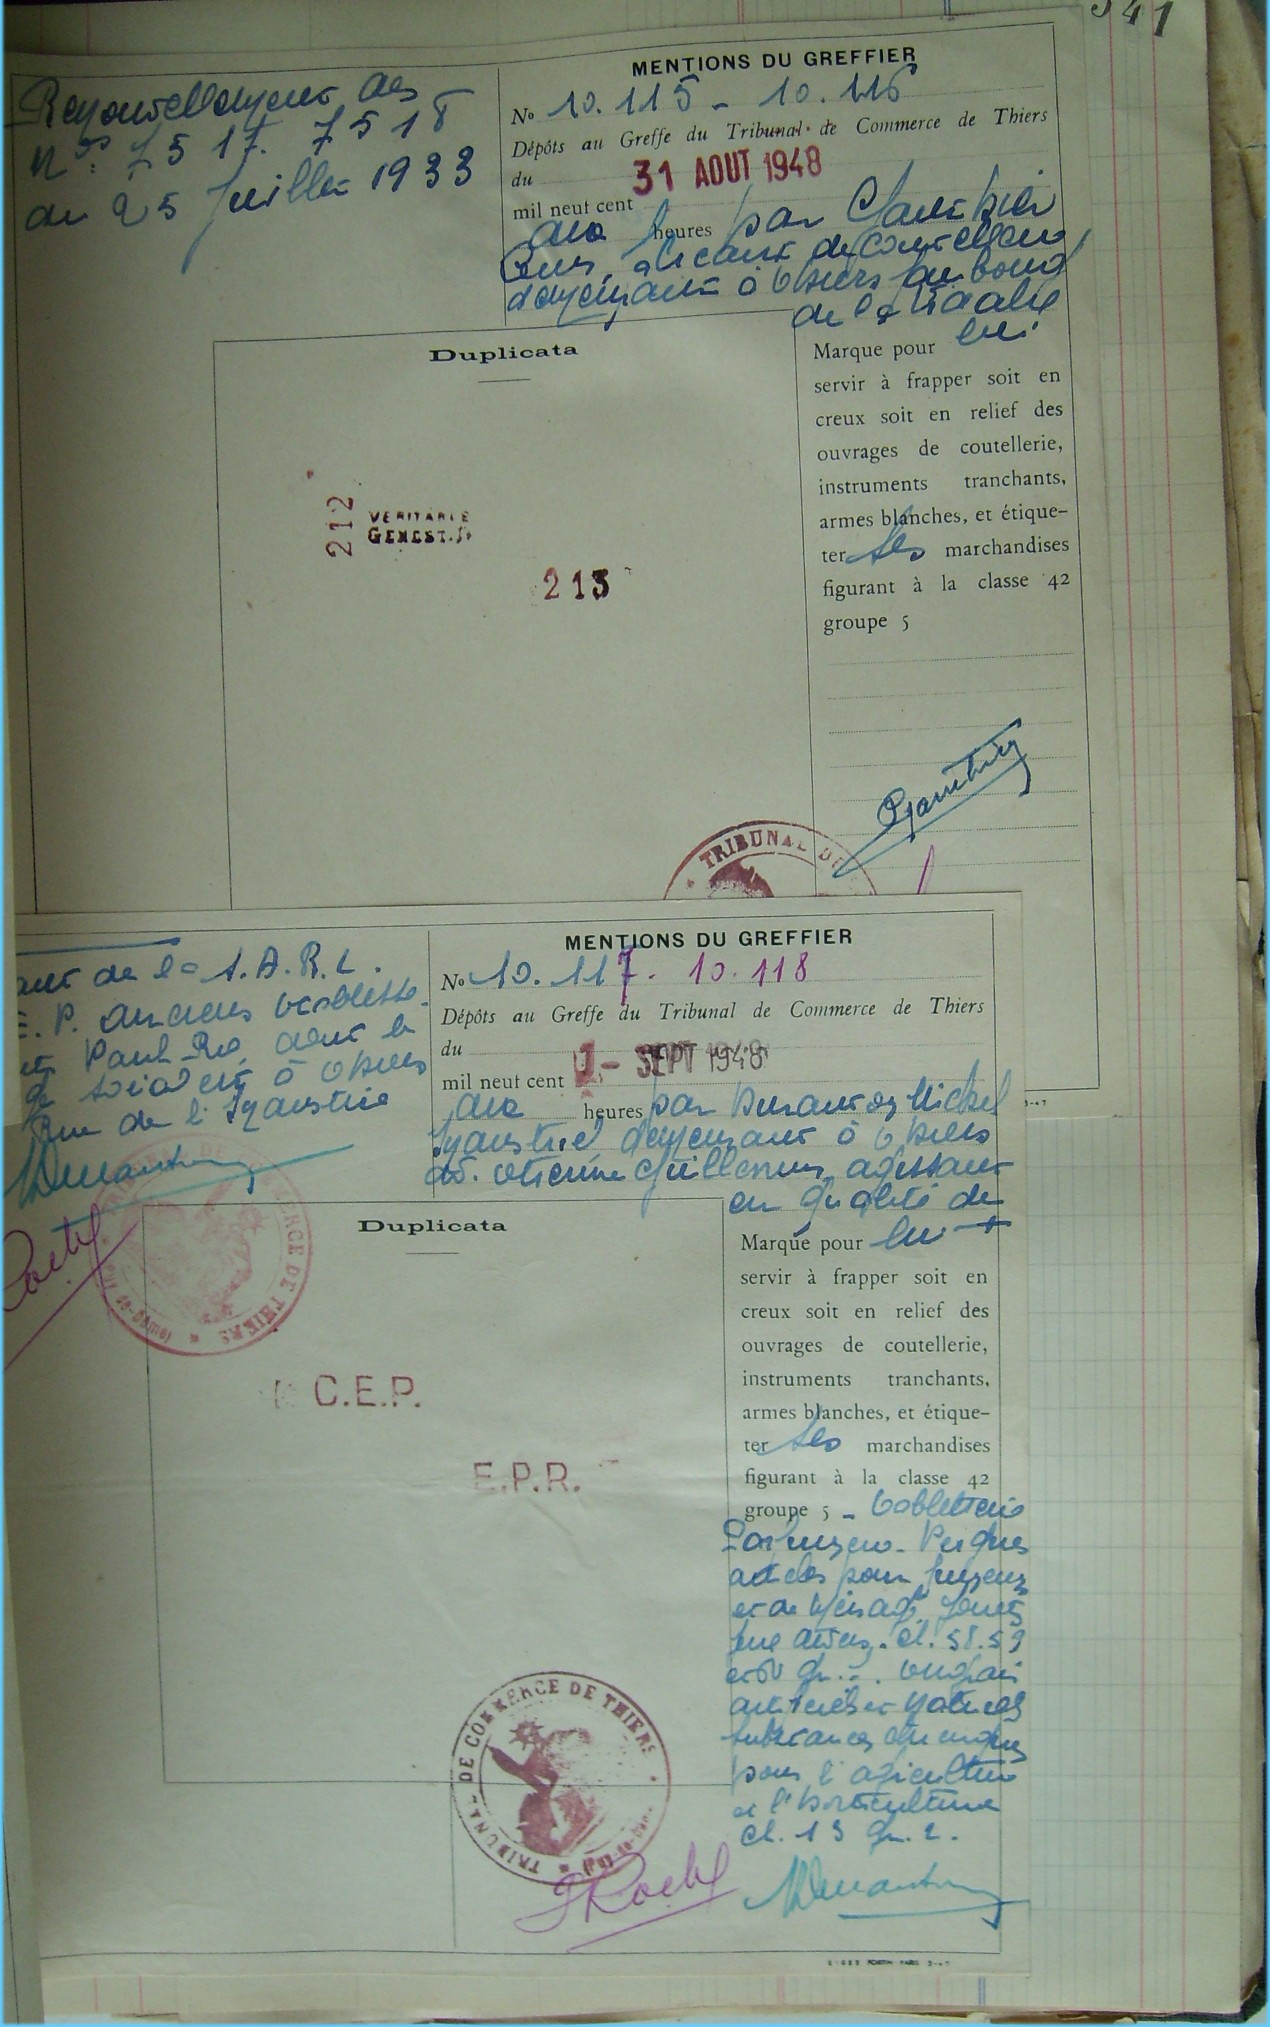 341
Renouvellement des
Nos 7517. 7518
du 25 Juillet 1933
MENTIONS DU GREFFIER
No 10.115 - 10.116
Dépôts au Greffe du Tribunal de Commerce de Thiers
du 31 AOUT 1948
mil neuf cent
dix heures par
fabricant de coutellerie,
demeurant à Thiers
lui
Duplicata
212
VERITABLE
GENEST.
213
Marque pour
servir à frapper soit en
creux soit en relief des
ouvrages de coutellerie,
instruments tranchants,
armes blanches, et étique-
ter ses marchandises
figurant à la classe 42
groupe 5
TRIBUNAL DE
MENTIONS DU GREFFIER
No 10.117. 10.118
Dépôts au Greffe du Tribunal de Commerce de Thiers
du 1- SEPT 1948
mil neuf cent
dix heures par Duranton Michel
Industriel demeurant à Thiers
av. Etienne Guillemin, agissant
en qualité de
de la S.A.R.L.
E.P. anciens
Paul Rio, dont le
social est à Thiers
Rue de l'Industrie
Duplicata
COMMERCE DE THIERS
C.E.P.
E.P.R.
Marque pour lui
servir à frapper soit en
creux soit en relief des
ouvrages de coutellerie,
instruments tranchants,
armes blanches, et étique-
ter ses marchandises
figurant à la classe 42
groupe 5 - Tabletterie
Peignes
articles pour fumeurs
et de ménage
cl. 58.59
et 60
engrais
substances chimiques
pour l'agriculture
et l'horticulture
cl. 13 gr. 2.
TRIBUNAL DE COMMERCE DE THIERS
(Puy-de-Dôme)